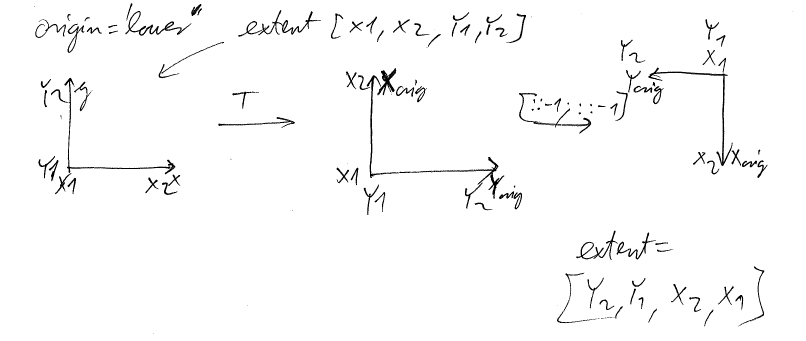 origin='lower" extent [x1, x2, Y1, Y2]
Y2 y
Y1
X1 X2 x
T
X2 Xorig
X1
Y1 Y2 Yorig
[::-1, ::-1]
Y1
Y2 X1
Yorig
X2 Xorig
extent=
[Y2, Y1, X2, X1]